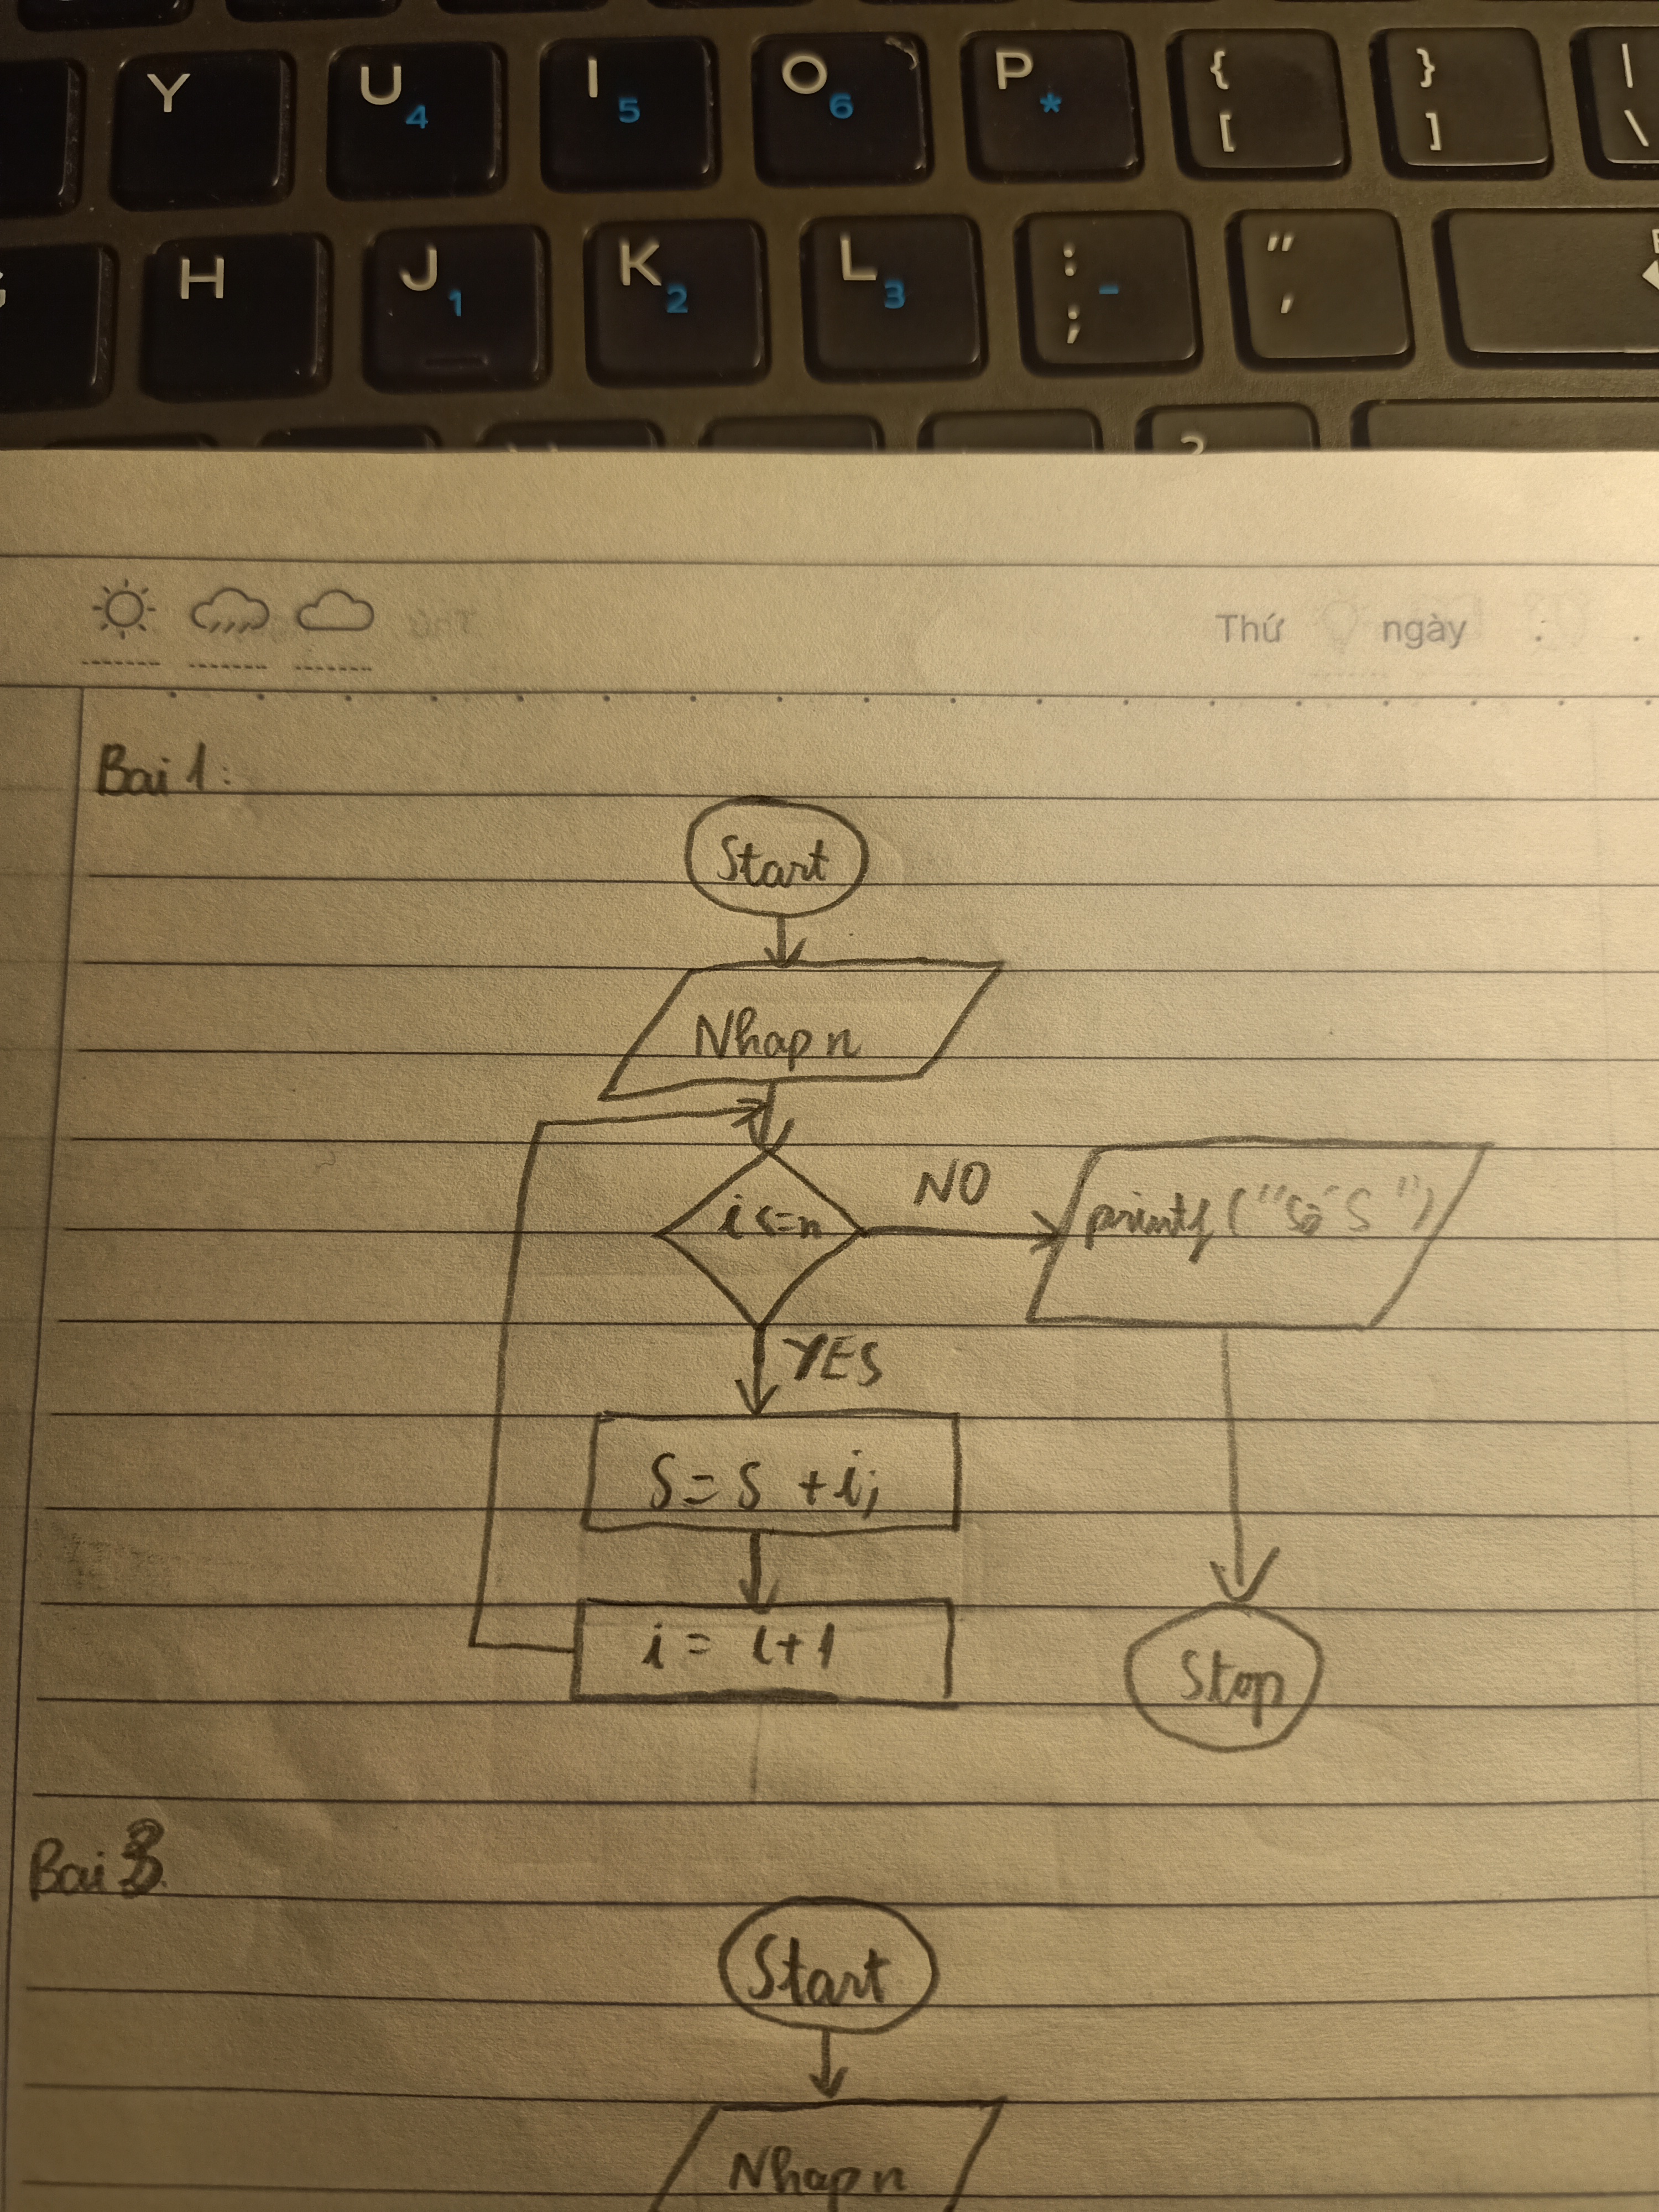 Y U 4 I 5 O 6 P * { [ } ] | \
H J 1 K 2 L 3 : ; - " '
Thứ ngày
Bai 1:
Start
Nhap n
i <= n
NO
printf ("Số S")
YES
S = S + i;
i = i + 1
Stop
Bai 3
Start
Nhap n